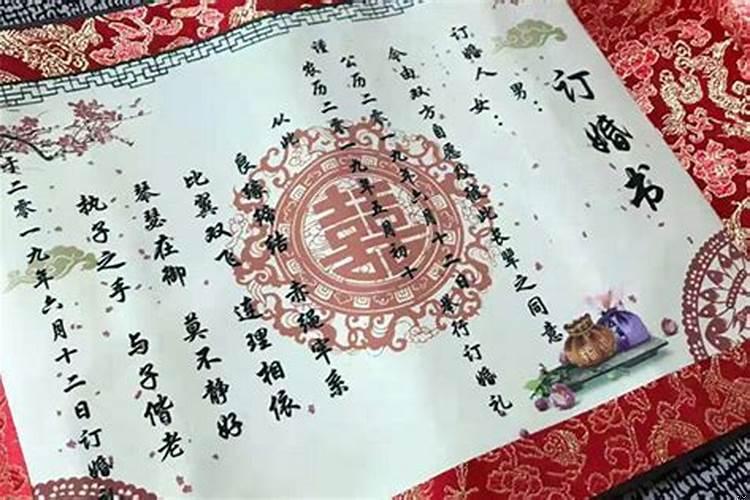 订婚书
订婚人 男：
女：
今由双方自愿及此长辈之同意
谨 公历二零一九年六月十二日举行订婚礼
农历二零一九年五月初十
从此
良缘缔结 赤绳牢系
比翼双飞 连理相依
琴瑟在御 莫不静好
执子之手 与子偕老
于二零一九年六月十二日订婚
囍